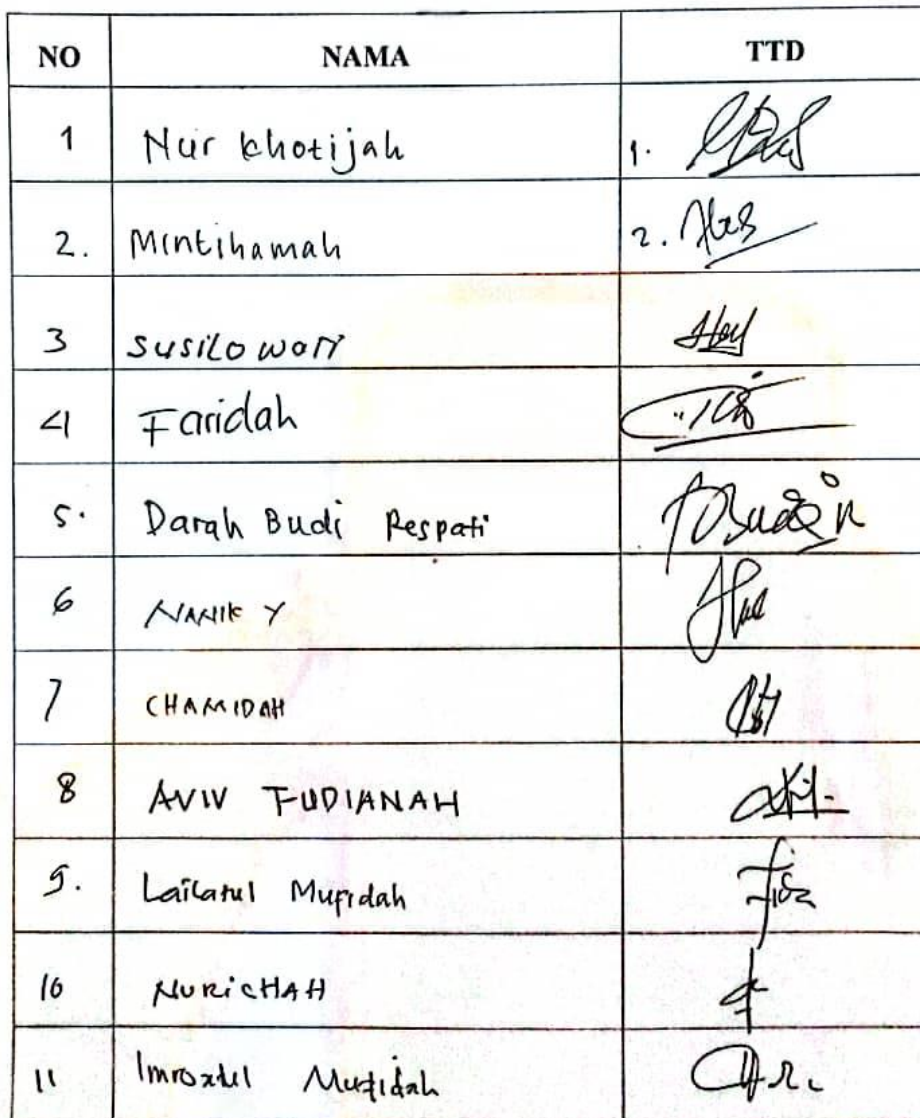 NO NAMA TTD
1 Nur Khotijah 1.
2. Mintihamah 2.
3 Susilowati
4 Faridah
5. Darah Budi Respati
6 NANIK Y
7 CHAMIDAH
8 AVIV FUDIANAH
9. Lailatul Mufidah
10 NURICHAH
11 Mufidah